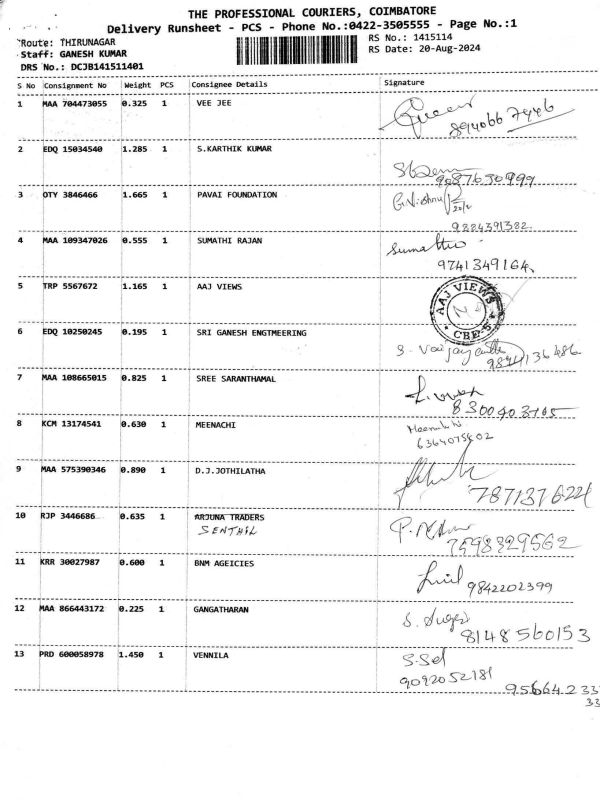 THE PROFESSIONAL COURIERS, COIMBATORE
Delivery Runsheet - PCS - Phone No.:0422-3505555 - Page No.:1
Route: THIRUNAGAR
RS No.: 1415114
Staff: GANESH KUMAR
RS Date: 20-Aug-2024
DRS No.: DCJB141511401
S No Consignment No Weight PCS Consignee Details Signature
1 MAA 704473055 0.325 1 VEE JEE
8940667446
2 EDQ 15034540 1.285 1 S.KARTHIK KUMAR
9087630999
3 OTY 3846466 1.665 1 PAVAI FOUNDATION
G.Vishnu
9884391382
4 MAA 109347026 0.555 1 SUMATHI RAJAN
Sumathi
9741349164
5 TRP 5567672 1.165 1 AAJ VIEWS
AAJ VIEWS
CBE-5
6 EDQ 10250245 0.195 1 SRI GANESH ENGTMEERING
S. Vaijayanthi
7 MAA 108665015 0.825 1 SREE SARANTHAMAL
8 KCM 13174541 0.630 1 MEENACHI
Meenakchi
9 MAA 575390346 0.890 1 D.J.JOTHILATHA
7871376224
10 RJP 3446686 0.635 1 ARJUNA TRADERS
SENTHIL
7598829562
11 KRR 30027987 0.600 1 BNM AGEICIES
9842202399
12 MAA 866443172 0.225 1 GANGATHARAN
8148560153
13 PRD 600058978 1.450 1 VENNILA
S.Sel
9092052181
956642 33
33